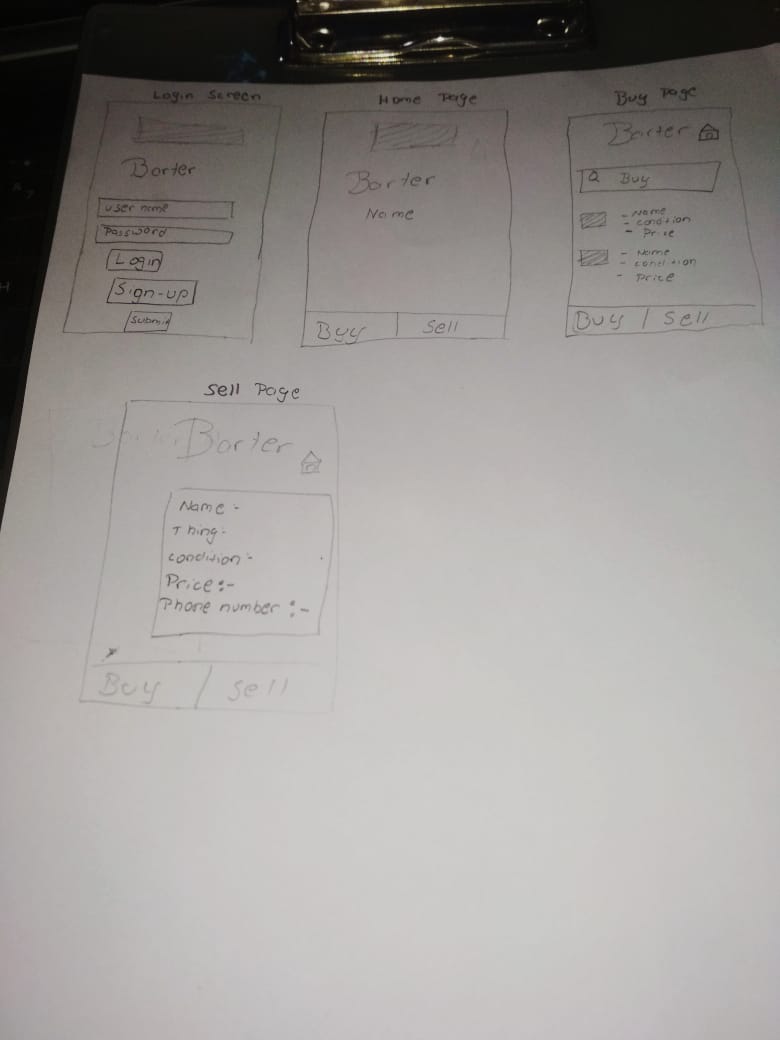 Login Screen
Barter
user name
Password
Login
Sign-up
Submit
Home Page
Barter
Name
Buy | Sell
Buy Page
Barter
Buy
- Name
- condition
- Price
- Name
- condition
- Price
Buy | Sell
Sell Page
Barter
Name -
Thing -
condition -
Price :-
Phone number :-
Buy / Sell